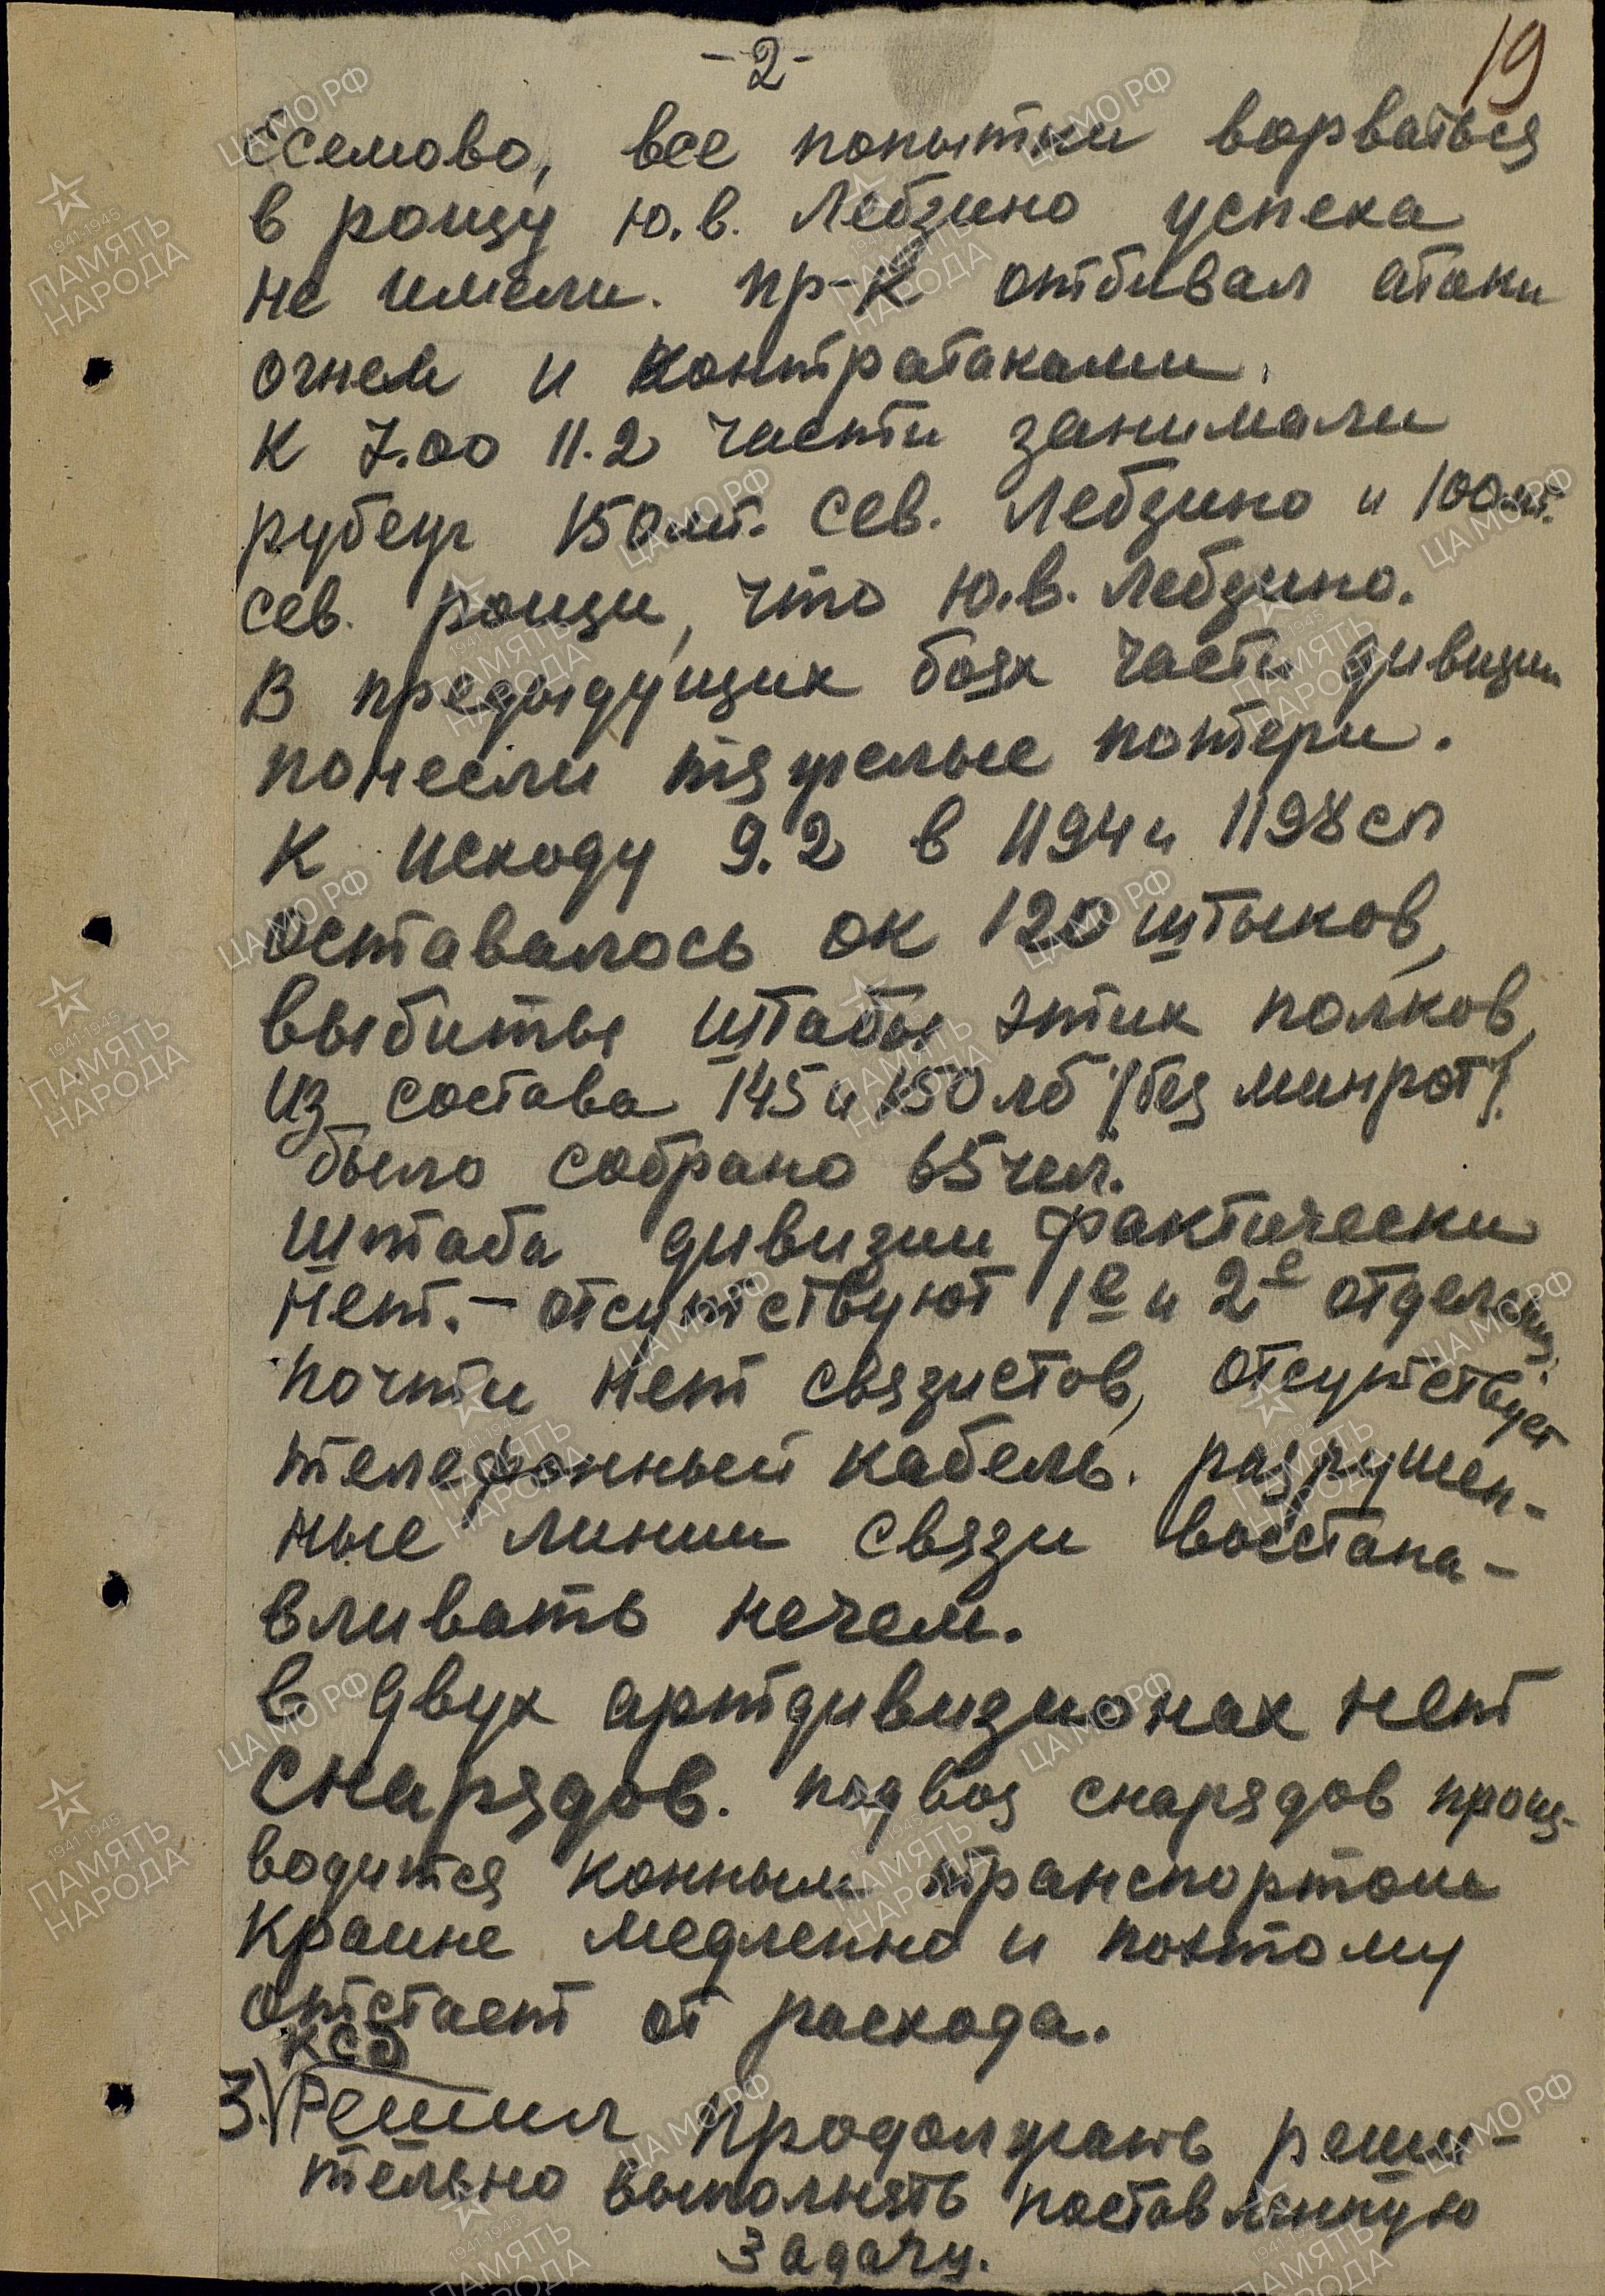 -2-
19
Есемово, все попытки ворваться
в рощу ю.в. Лебзино успеха
не имели. пр-к отбивал атаки
огнем и контратаками.
К 7.00 11.2 части занимали
рубеж 150 мт. сев. Лебзино и 100 мт.
сев. рощи, что ю.в. Лебзино.
В предыдущих боях части дивизии
понесли тяжелые потери.
К исходу 9.2 в 1194 и 1198 сп
оставалось ок 120 штыков,
выбиты штабы этих полков,
из состава 145 и 150 лб /без минрот/
было собрано 65 чел.
Штаба дивизии фактически
нет. - отсутствуют 1е и 2е отделения,
почти нет связистов, отсутствует
телефонный кабель. разрушен-
ные линии связи восстана-
вливать нечем.
В двух артдивизионах нет
снарядов. подвоз снарядов произ-
водится конным транспортом
крайне медленно и поэтому
отстает от расхода.
КСД
3.) Решил продолжать реши-
тельно выполнять поставленную
задачу.
ЦАМО РФ
1941-1945
ПАМЯТЬ
НАРОДА